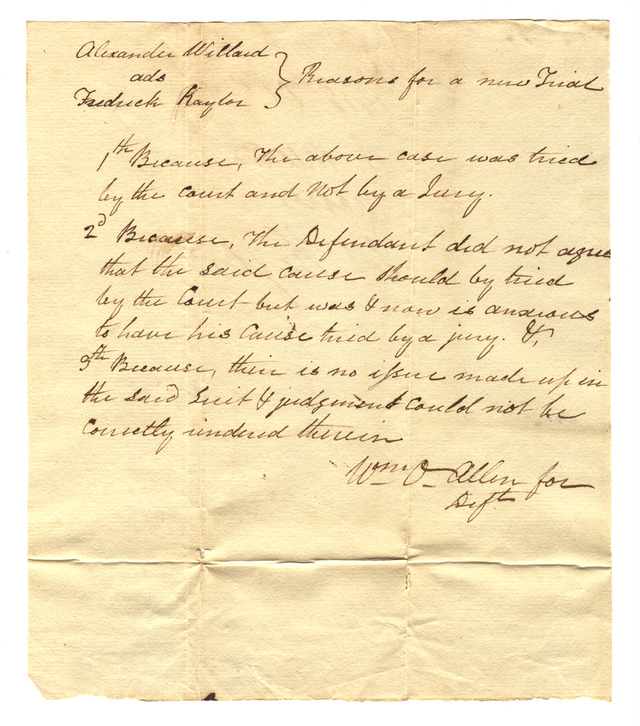 Alexander Willard
ads
Fredrick Kaylor } Reasons for a new Trial
1th Because, The above case was tried
by the court and Not by a Jury.
2d Because, The Defendant did not agree
that the said cause should by tried
by the Court but was & now is anxious
to have his Cause tried by a jury. &,
3th Because, their is no issue made up in
the said Suit & judgement Could not be
Correctly rendered therein
Wm O Allen for
Deft